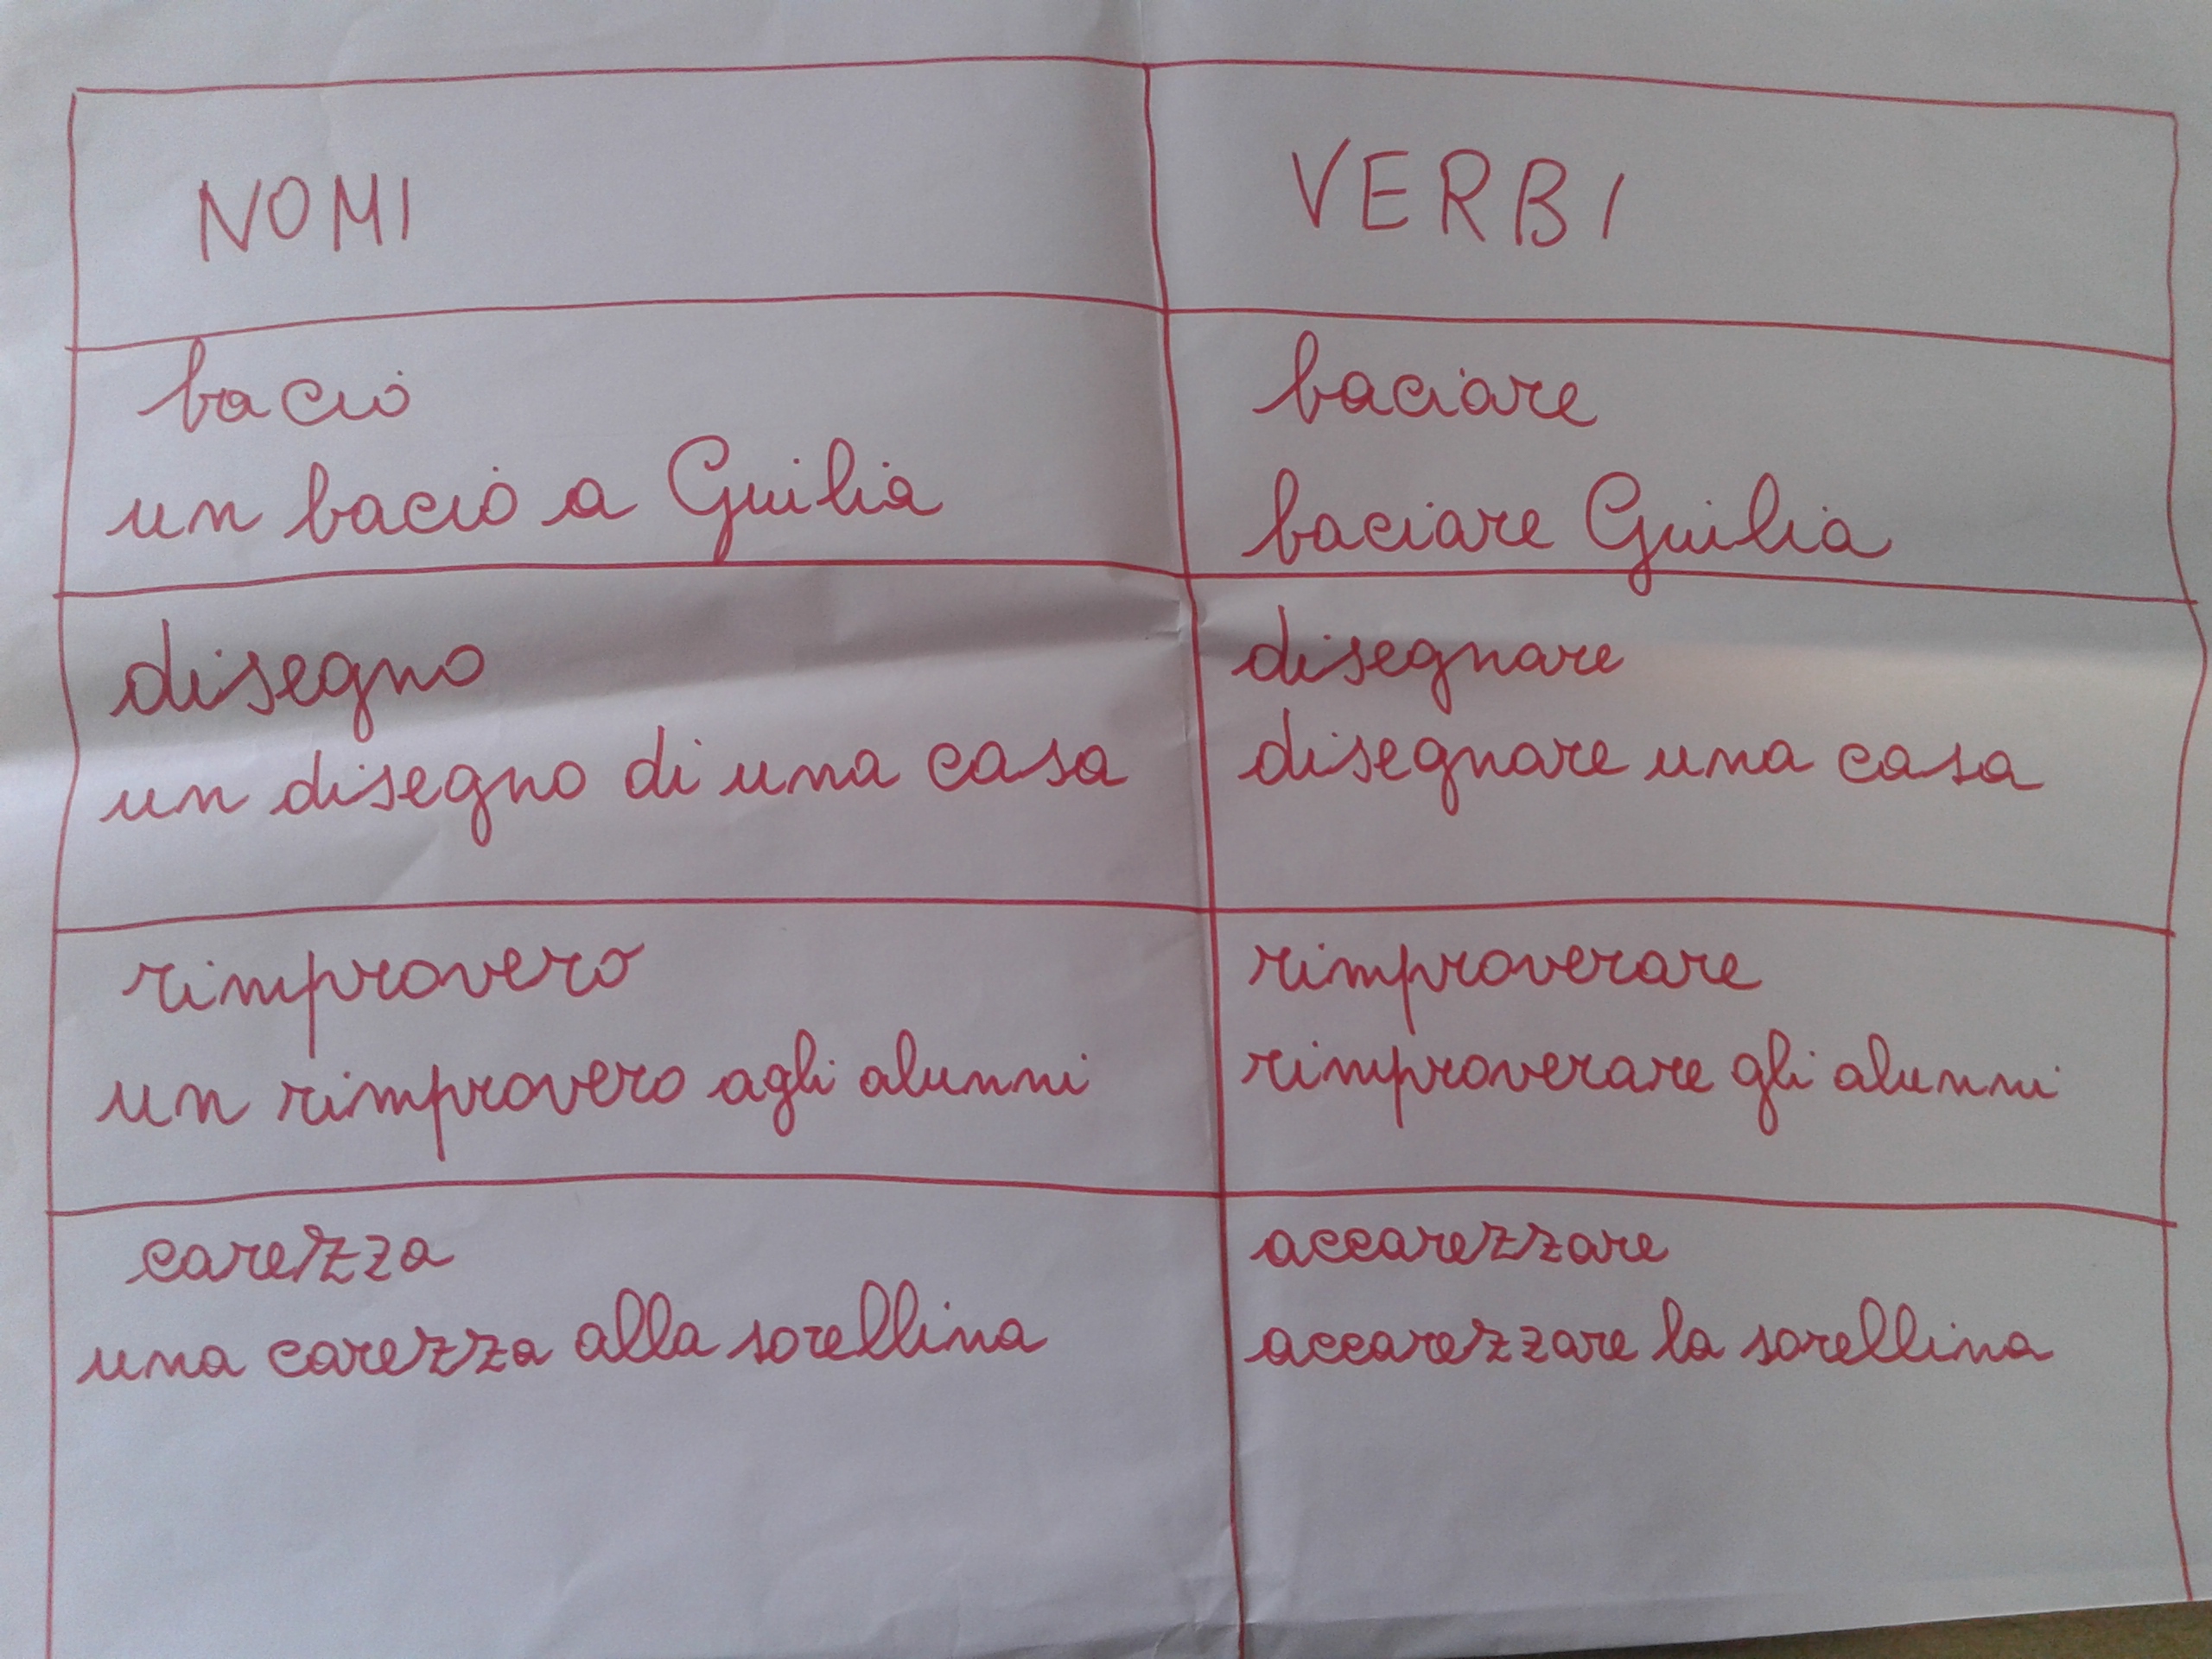 NOMI
VERBI
bacio
un bacio a Giulia
baciare
baciare Giulia
disegno
un disegno di una casa
disegnare
disegnare una casa
rimprovero
un rimprovero agli alunni
rimproverare
rimproverare gli alunni
carezza
una carezza alla sorellina
accarezzare
accarezzare la sorellina